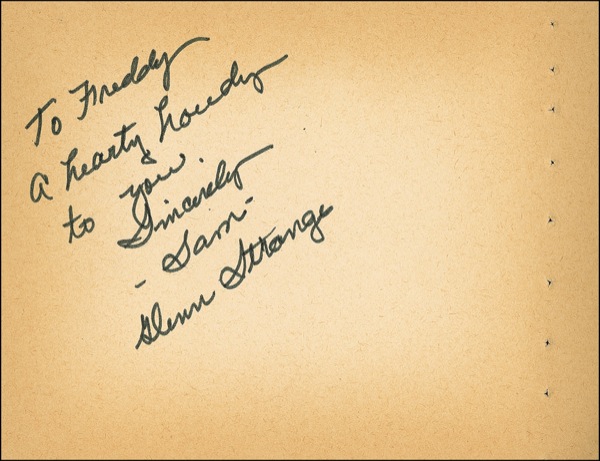 To Freddy
A hearty howdy
to you.
Sincerely
- Sam -
Glenn Strange